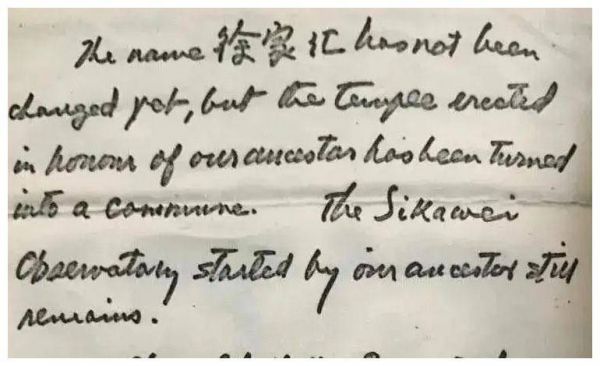 The name 徐家汇 has not been
changed yet, but the temple erected
in honour of our ancestor has been turned
into a commune. The Sikawei
Observatory started by our ancestor still
remains.